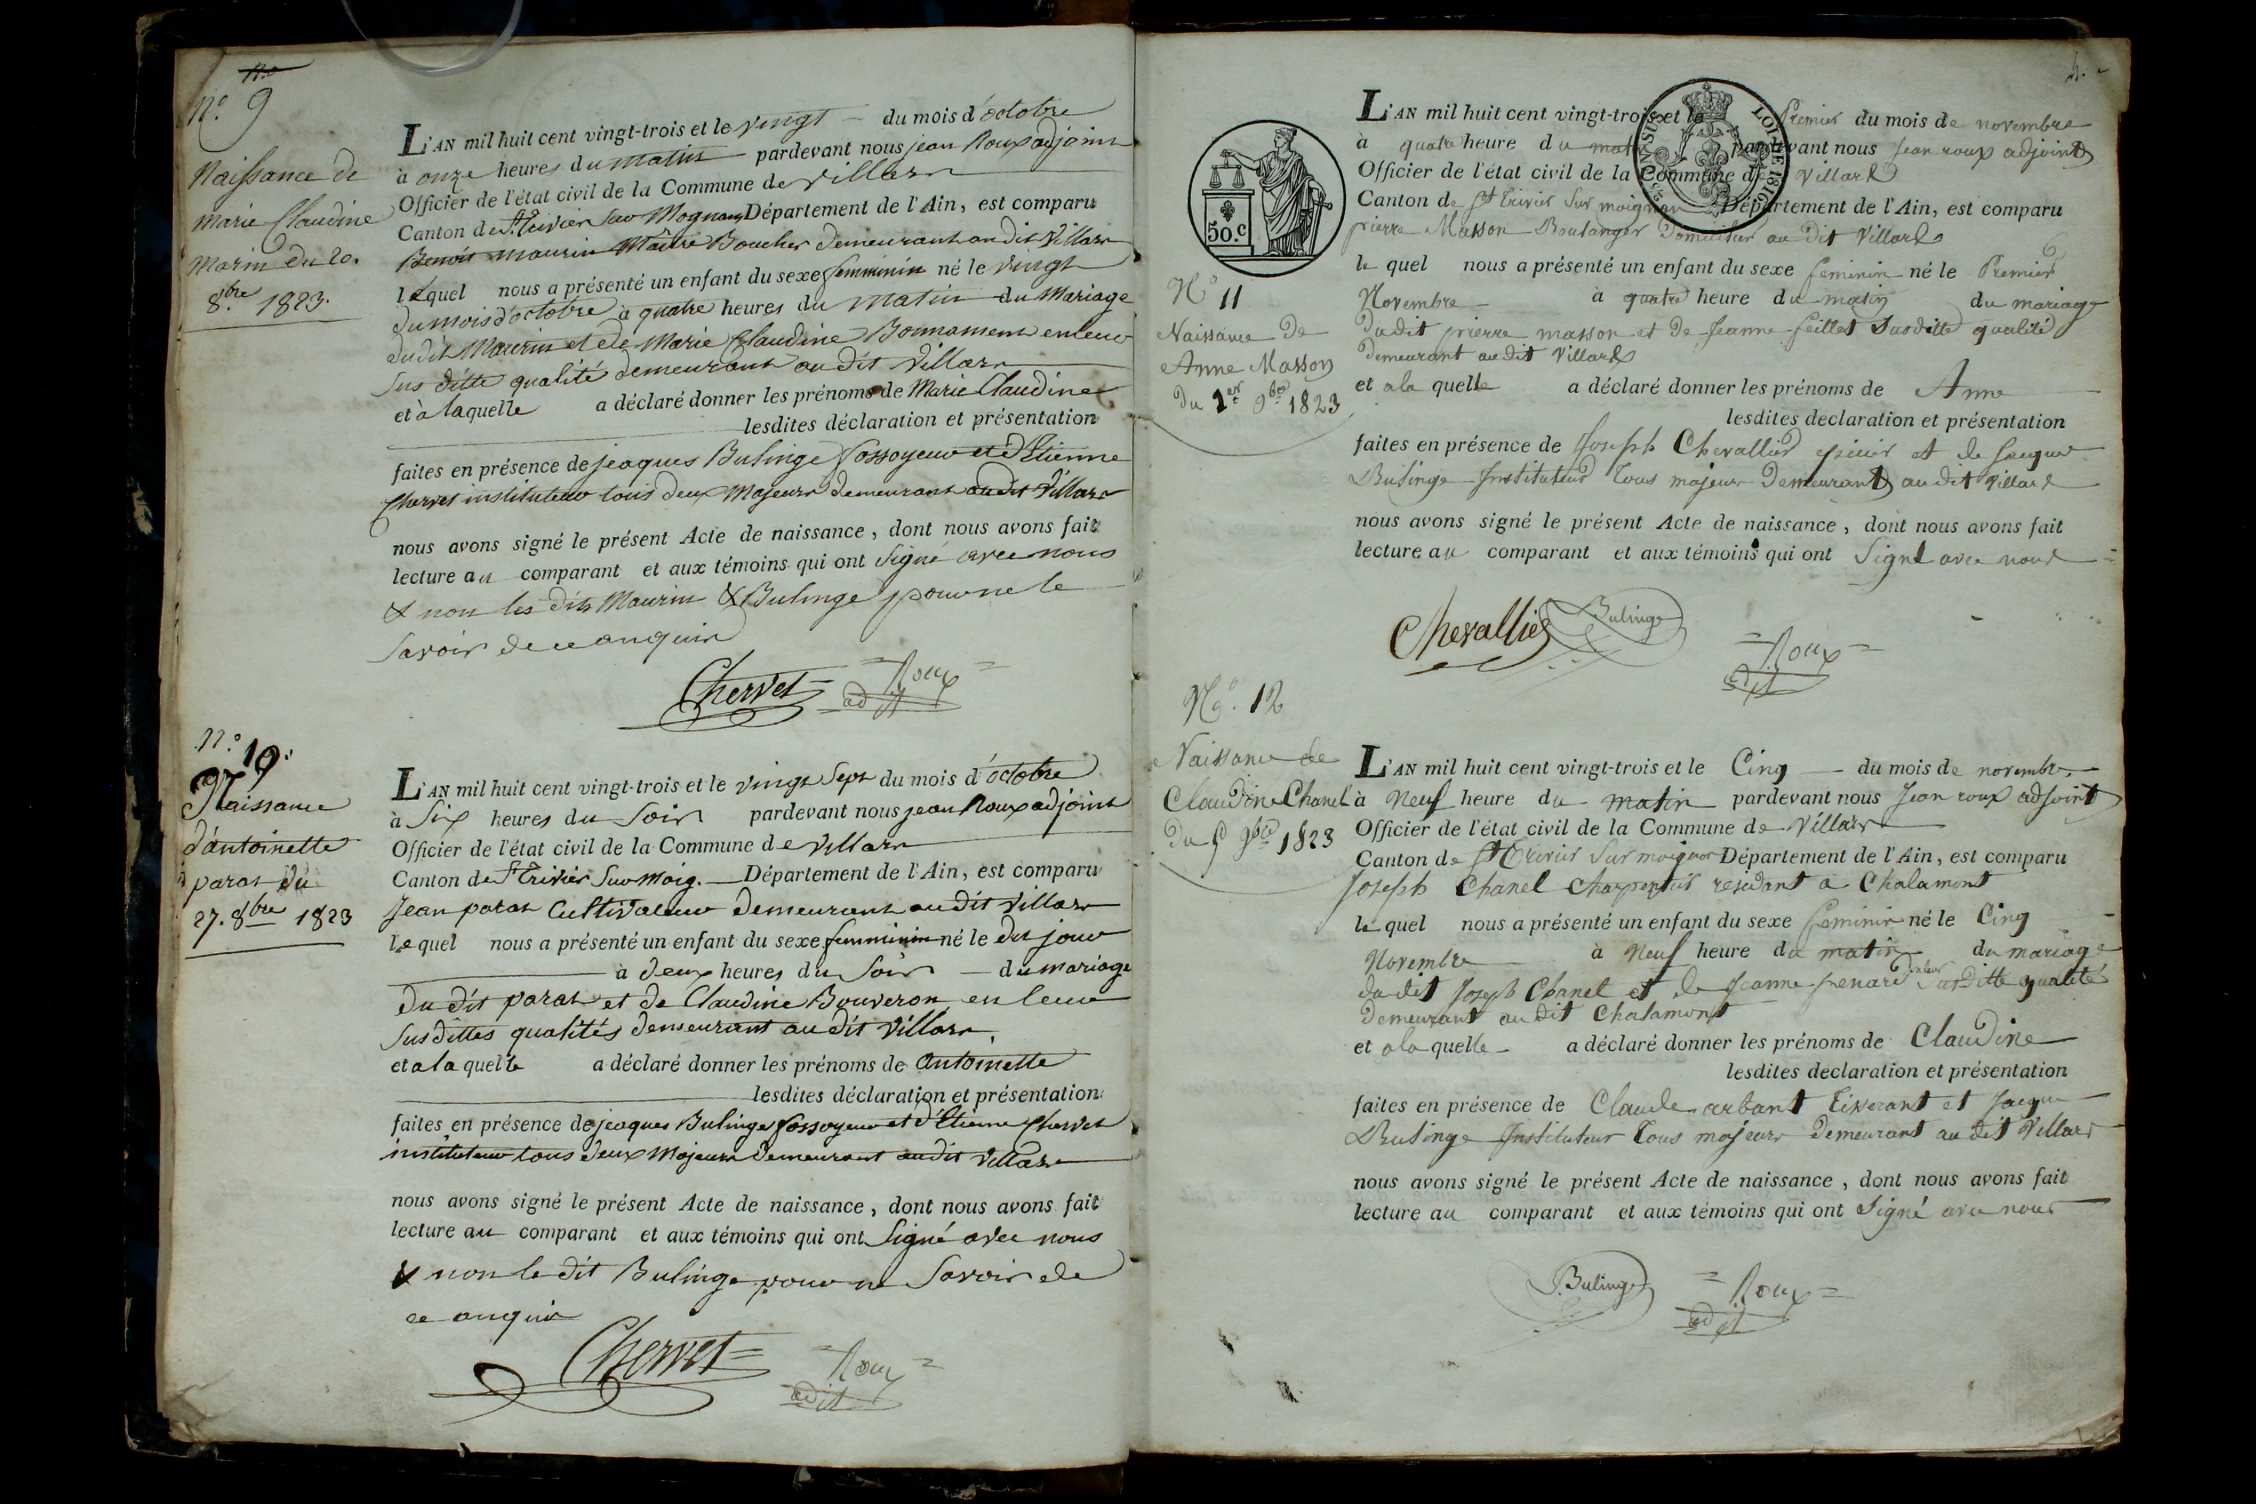 N.o
N.o 9
Naissance de
Marie Claudine
Marin du 20.
8.bre 1823.
L'AN mil huit cent vingt-trois et le vingt du mois d'octobre
à onze heures du matin pardevant nous jean Roux adjoint
Officier de l'état civil de la Commune de villars
Canton de St. Trivier Sur Mognans Département de l'Ain, est comparu
Benoit maurin Maître Boucher demeurant au dit Villars
lequel nous a présenté un enfant du sexe femminin né le vingt
du mois d'octobre à quatre heures du matin du Mariage
du dit Maurin et de Marie Claudine Bonnament en leur
sus ditte qualité demeurant au dit villars
et à laquelle a déclaré donner les prénoms de Marie Claudine
lesdites déclaration et présentation
faites en présence de jeaques Bulinge fossoyeur et d'Etienne
Chervet instituteur tous deux Majeurs demeurant au dit Villars
nous avons signé le présent Acte de naissance, dont nous avons fait
lecture au comparant et aux témoins qui ont Signé avec nous
& non les dits Maurin & Bulinge pour ne le
savoir de ce enquis
Chervet
Roux
adjt
n.o 10.
Naissance
d'antoinette
parat du
27. 8bre 1823
L'AN mil huit cent vingt-trois et le vingt Sept du mois d'octobre
à Six heures du Soir pardevant nous jean Roux adjoint
Officier de l'état civil de la Commune de Villars
Canton de St Trivier Sur Moig. Département de l'Ain, est comparu
Jean parat Cultivateur demeurant au dit villars
lequel nous a présenté un enfant du sexe femminin né le dit jour
à deux heures du Soir du mariage
du dit parat et de Claudine Bouveron en leur
Susdittes qualités demeurant au dit villars
et a la quelle a déclaré donner les prénoms de Antoinette
lesdites déclaration et présentation
faites en présence de jeaques Bulinge fossoyeur et d'Etienne Chervet
instituteur tous deux Majeurs demeurant au dit villars
nous avons signé le présent Acte de naissance, dont nous avons fait
lecture au comparant et aux témoins qui ont Signé avec nous
& non le dit Bulinge pour ne Savoir de
ce enquis
Chervet
Roux
adjt
50.C
LOI DE 1816
N.o 11
Naissance De
Anne Masson
Du 1er 9bre 1823
L'AN mil huit cent vingt-trois et le Premier du mois de novembre
à quatre heure du matin pardevant nous Jean roux adjoint
Officier de l'état civil de la Commune de Villard
Canton de St Trivier Sur moignan Département de l'Ain, est comparu
pierre Masson Boulanger Domicilier au Dit Villard
le quel nous a présenté un enfant du sexe feminin né le Premier
Novembre à quatre heure du matin du mariage
du dit pierre masson et de Jeanne feillet Susditte qualité
Demeurant au dit Villard
et a la quelle a déclaré donner les prénoms de Anne
lesdites declaration et présentation
faites en présence de Joseph Chevallier epicier et de Jacque
Bulinge Instituteur Tous majeur Demeurant au dit Villard
nous avons signé le présent Acte de naissance, dont nous avons fait
lecture au comparant et aux témoins qui ont Signé avec nous
Chevallier
Bulinge
Roux
adjt
N.o 12
Naissance de
Claudine Chanel
Du 5 9bre 1823
L'AN mil huit cent vingt-trois et le Cinq du mois de novembre
à Neuf heure du matin pardevant nous Jean roux adjoint
Officier de l'état civil de la Commune de Villars
Canton de St Trivier Sur moignan Département de l'Ain, est comparu
Joseph Chanel Charpentier residant a Chalamont
le quel nous a présenté un enfant du sexe feminin né le Cinq
Novembre à Neuf heure du matin du mariage
du dit Joseph Chanel et de Jeanne penard Susditte qualité
Demeurant au dit Chalamont
et a la quelle a déclaré donner les prénoms de Claudine
lesdites declaration et présentation
faites en présence de Claude arbant Tisserant et Jacque
Bulinge Instituteur Tous majeurs Demeurant au dit Villars
nous avons signé le présent Acte de naissance, dont nous avons fait
lecture au comparant et aux témoins qui ont Signé avec nous
Bulinge
Roux
adjt